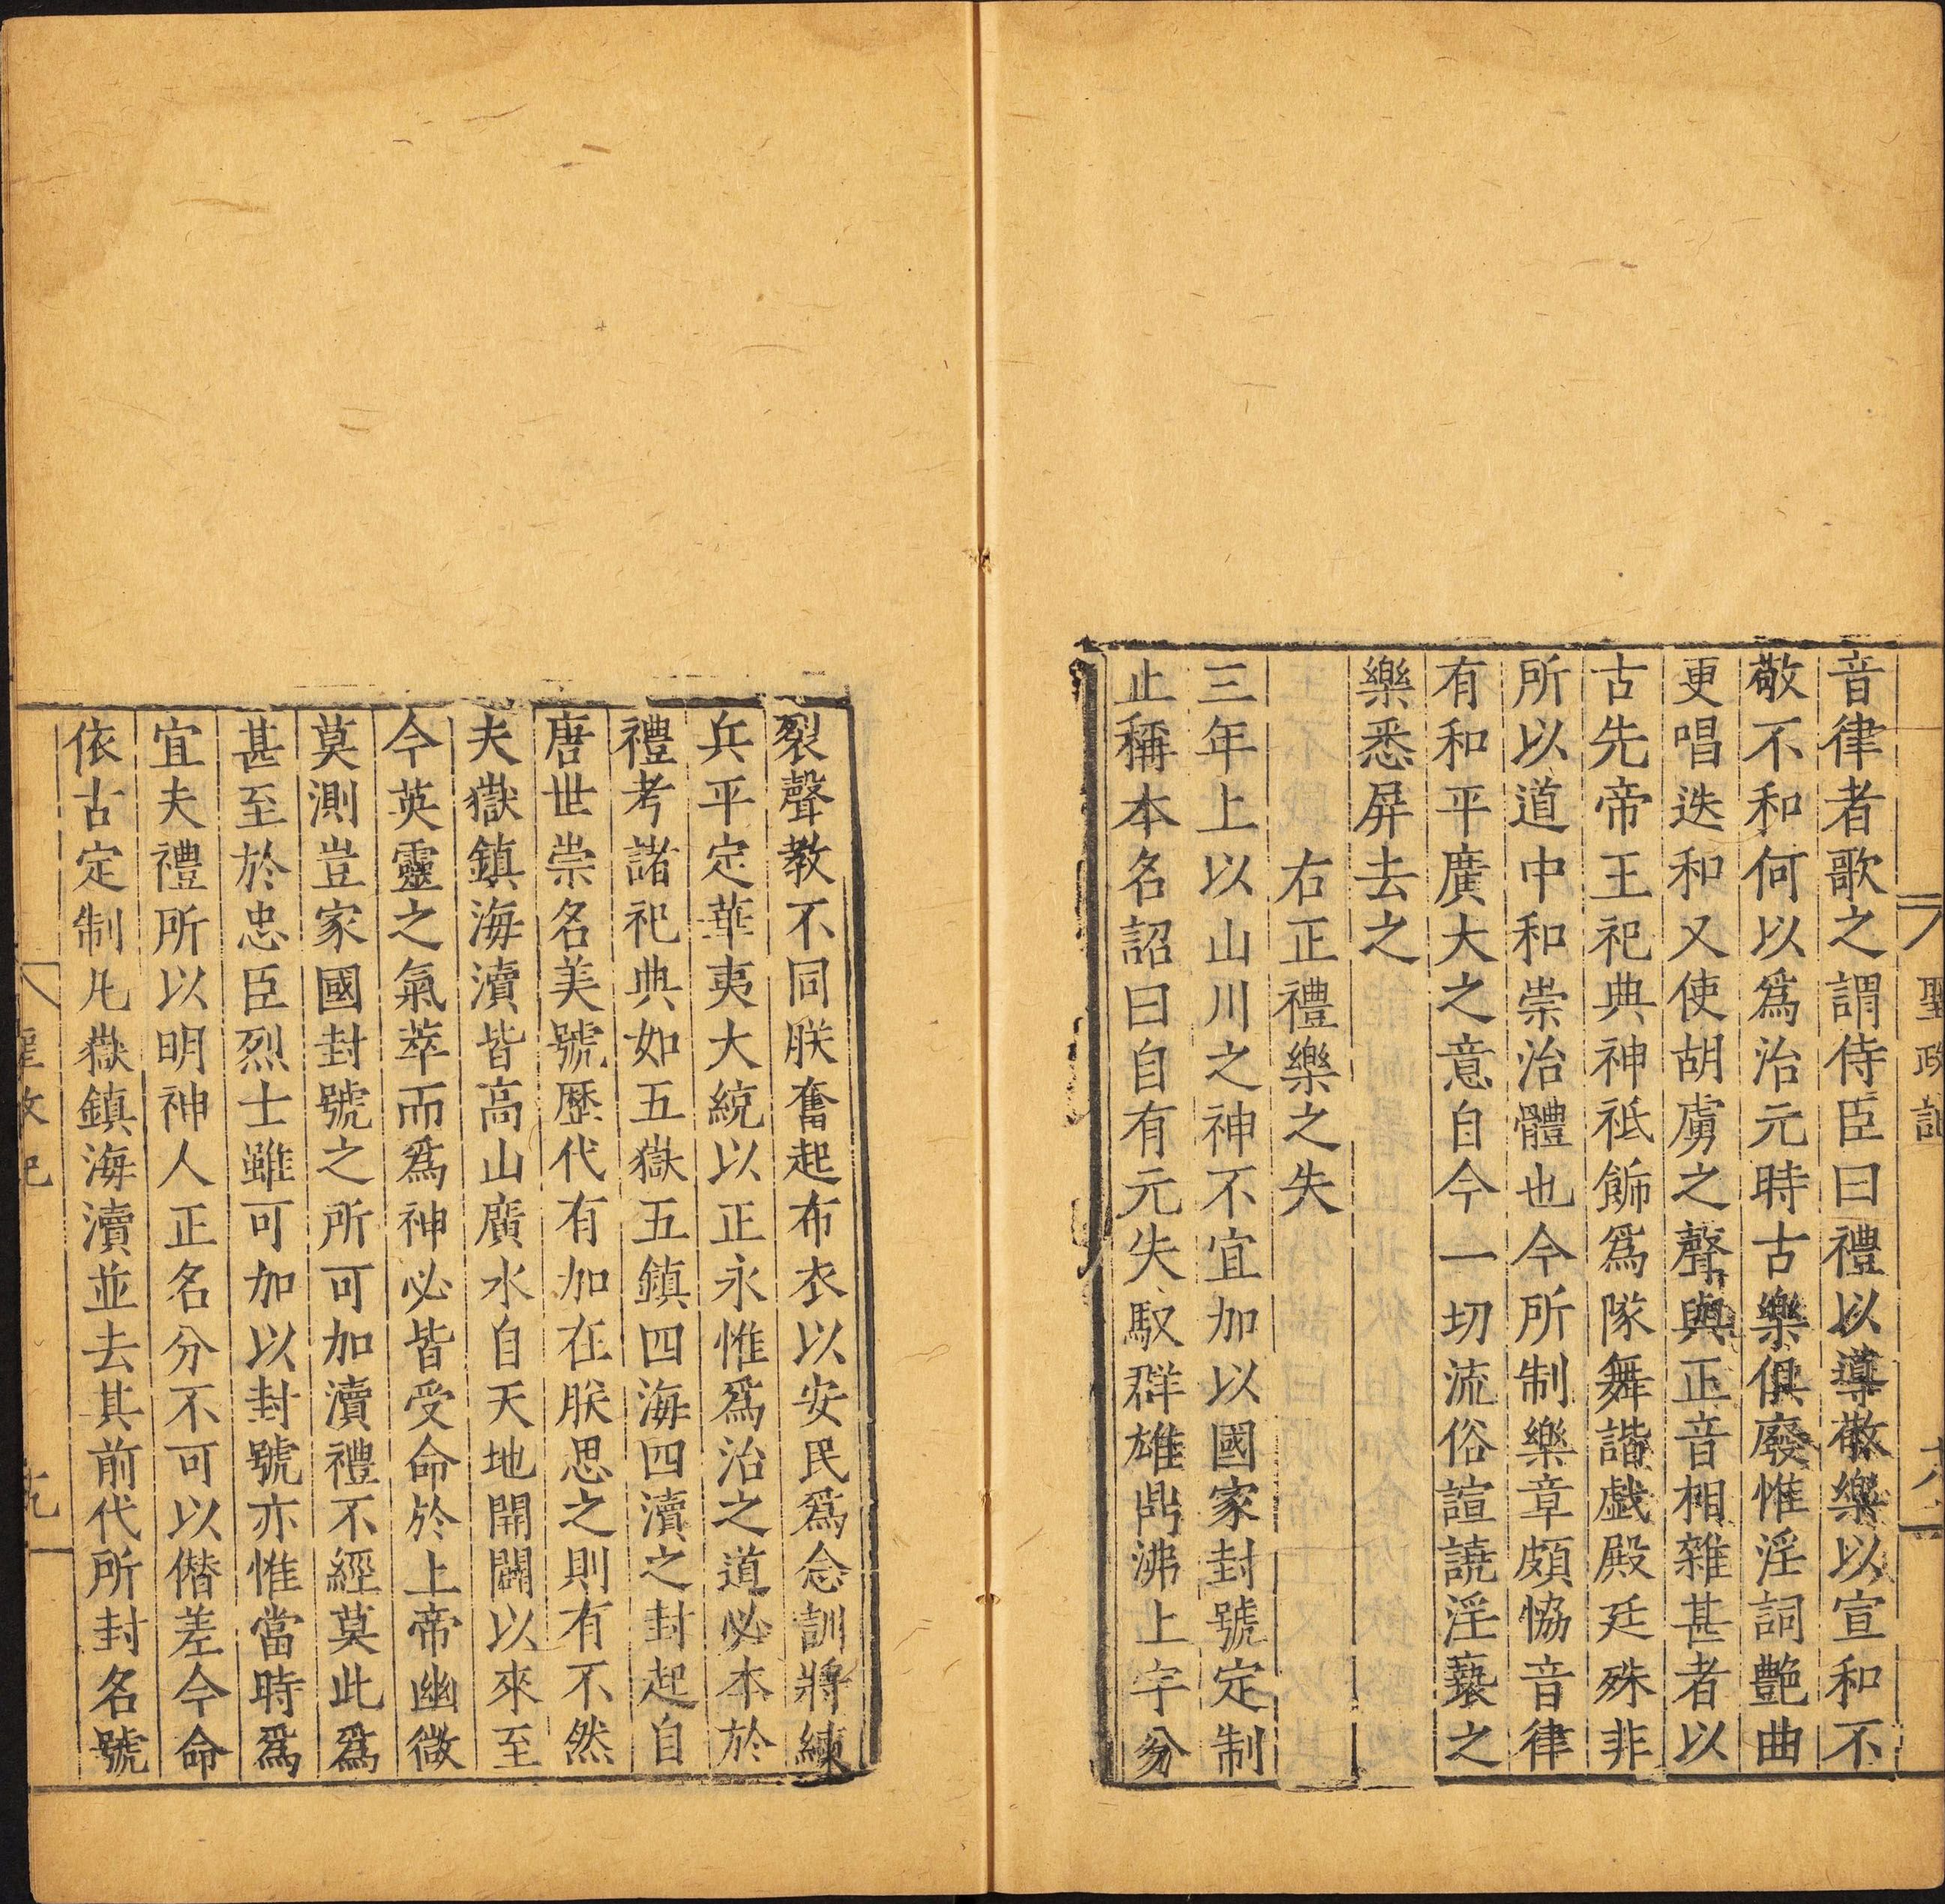 聖政記
音律者歌之謂侍臣曰禮以導敬樂以宣和不
敬不和何以爲治元時古樂俱廢惟淫詞艶曲
更唱迭和又使胡虜之聲與正音相雜甚者以
古先帝王祀典神祇飾爲隊舞諧戯殿廷殊非
所以道中和崇治體也今所制樂章頗恊音律
有和平廣大之意自今一切流俗諠譊淫䙝之
樂悉屏去之
右正禮樂之失
三年上以山川之神不宜加以國家封號定制
止稱本名詔曰自有元失馭群雄鼎沸上宇分
裂聲教不同朕奮起布衣以安民爲念訓將練
兵平定華夷大統以正永惟爲治之道必本於
禮考諸祀典如五嶽五鎮四海四瀆之封起自
唐世崇名美號歷代有加在朕思之則有不然
夫嶽鎮海瀆皆高山廣水自天地開闢以來至
今英靈之氣萃而爲神必皆受命於上帝幽微
莫測豈家國封號之所可加瀆禮不經莫此爲
甚至於忠臣烈士雖可加以封號亦惟當時爲
宜夫禮所以明神人正名分不可以僭差今命
依古定制凡嶽鎮海瀆並去其前代所封名號